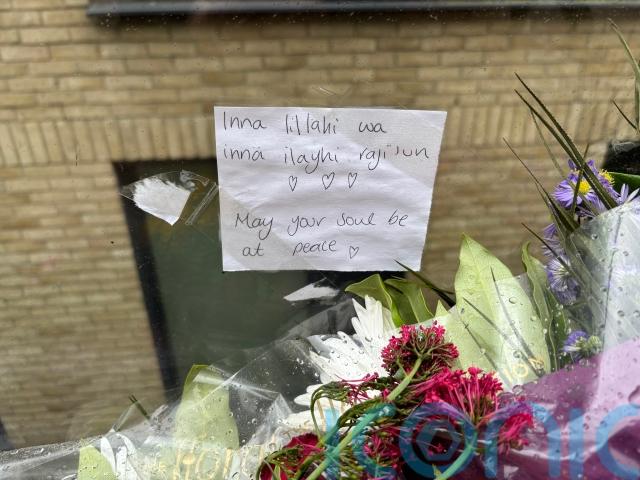 Inna lillahi wa
inna ilayhi raji'un
♡ ♡ ♡
May your soul be
at peace ♡
iconic